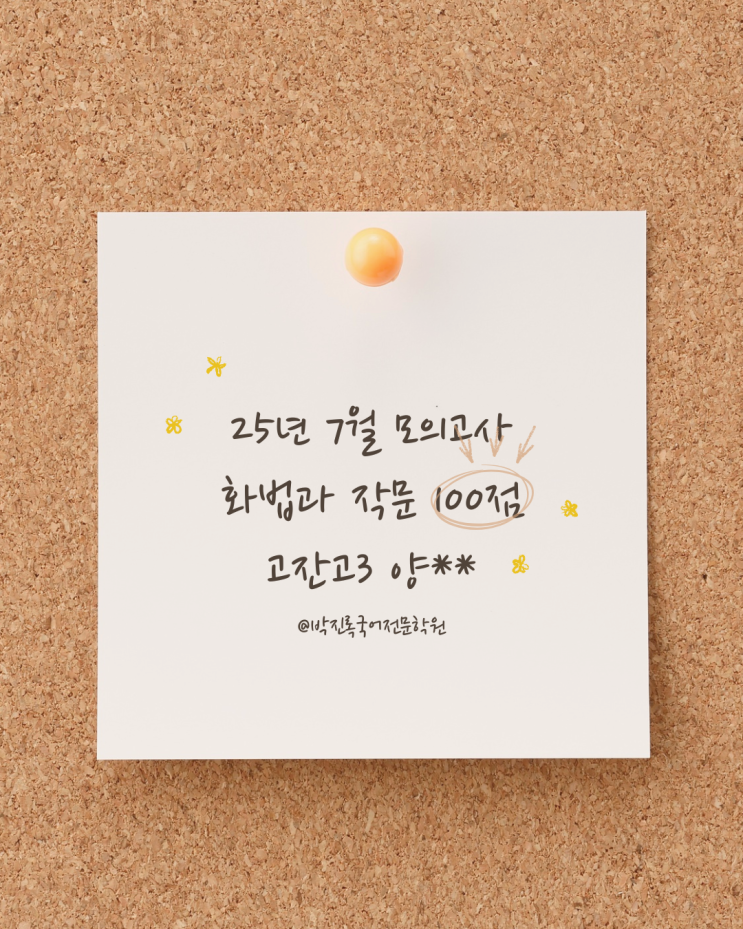 25년 7월 모의고사
화법과 작문 100점
고잔고3 양**
@박진록국어전문학원